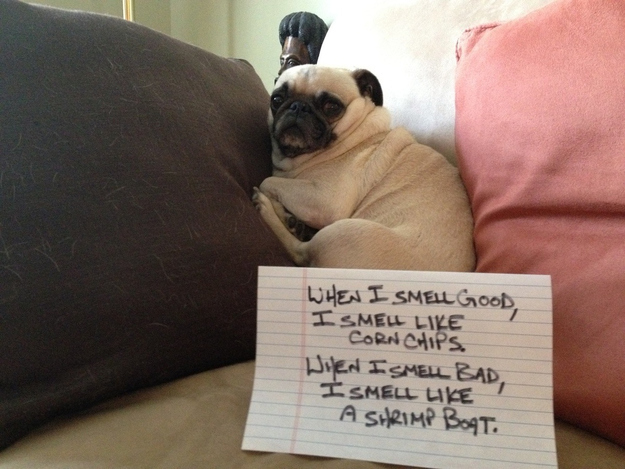 WHEN I SMELL GOOD,
I SMELL LIKE
CORN CHIPS.
WHEN I SMELL BAD,
I SMELL LIKE
A SHRIMP BOAT.